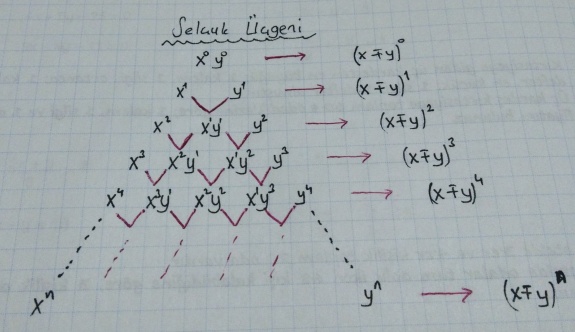 Selauk Üçgeni
x⁰y⁰ → (x∓y)⁰
x¹ y¹ → (x∓y)¹
x² x¹y¹ y² → (x∓y)²
x³ x²y¹ x¹y² y³ → (x∓y)³
x⁴ x³y¹ x²y² x¹y³ y⁴ → (x∓y)⁴
xⁿ yⁿ → (x∓y)ⁿ